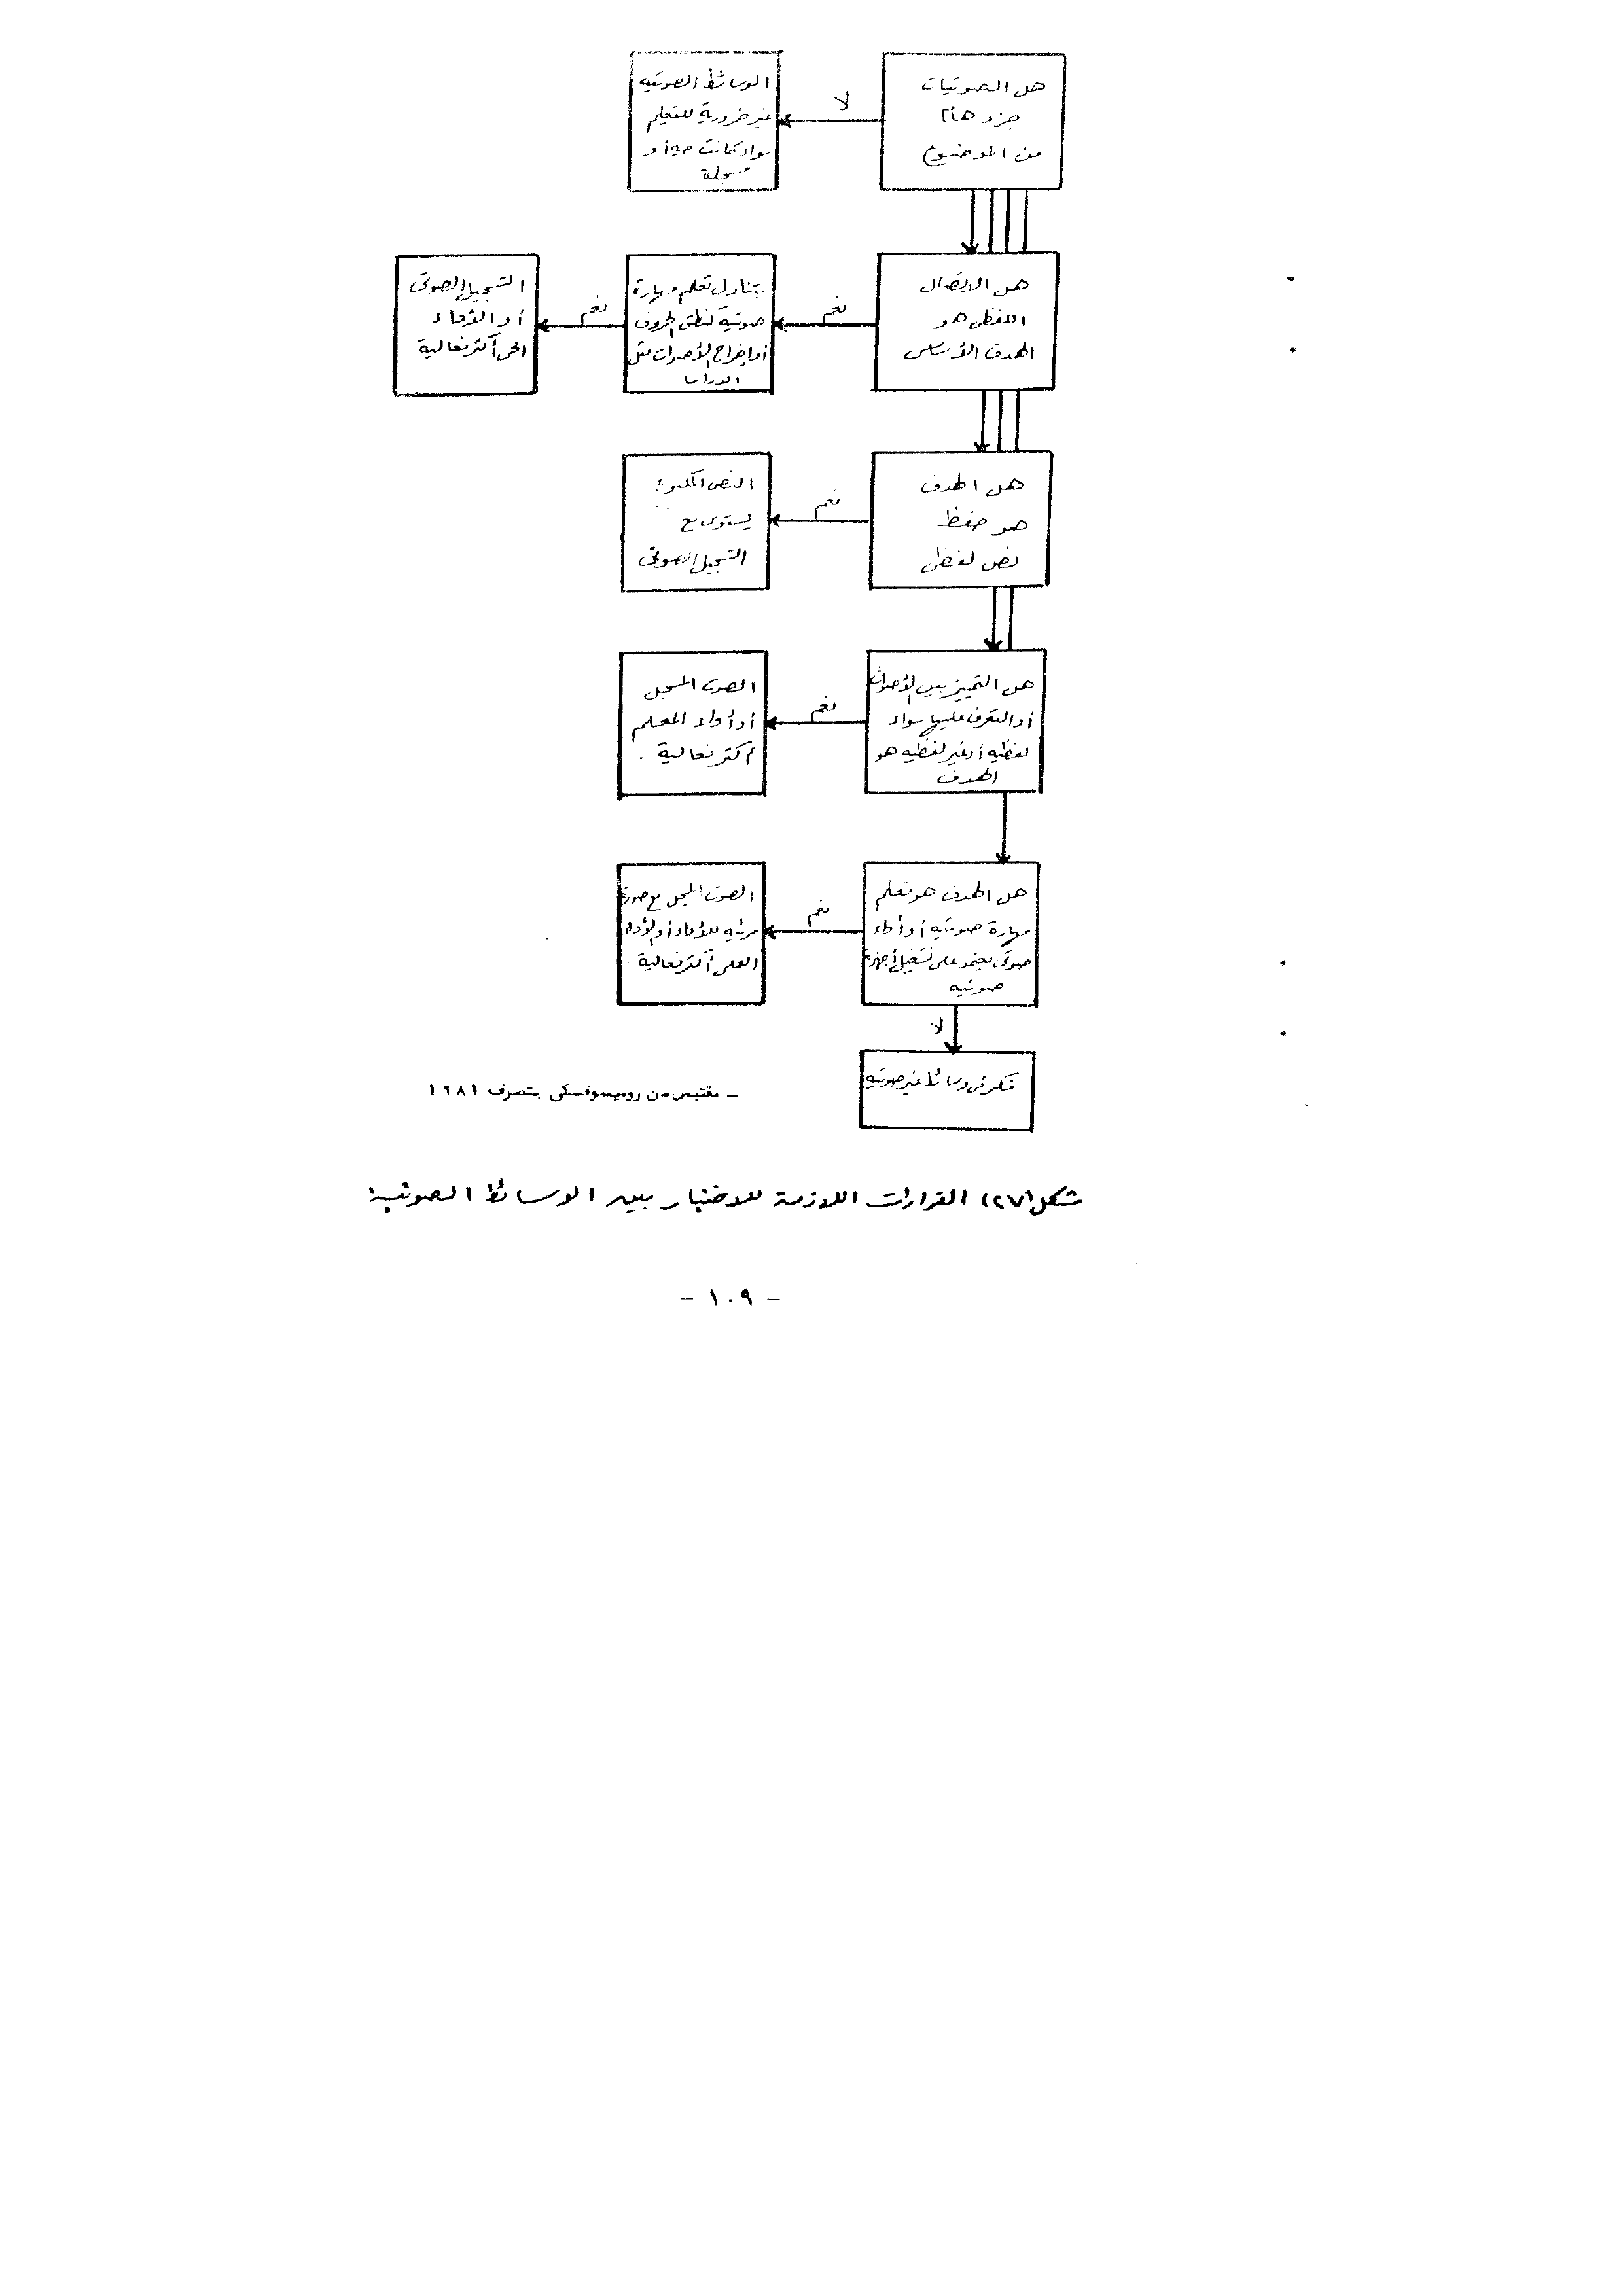 هل الصوتيات
جزء هاماً
من الموضوع
لا
الوسائط الصوتيه
غير ضرورية للتعليم
سواء كانت حية أو
مسجلة
هل الاتصال
اللفظى هو
الهدف الأساسى
نعم
يتناول تعلم مهارة
صوتية كنطق الحروف
أو إخراج الأصوات مثل
الدراما
نعم
التسجيل الصوتى
أو الأداء
الحى أكثر فعالية
هل الهدف
هو حفظ
نص لفظى
نعم
النص المكتوب
يستوى مع
التسجيل الصوتى
هل التمييز بين الأصوات
أو التعرف عليها سواء
لفظيه أو غير لفظيه هو
الهدف
نعم
الصوت المسجل
أو أداء المعلم
أكثر فعالية .
هل الهدف هو تعلم
مهارة صوتيه أو أداء
صوتى يعتمد على تشغيل أجهزة
صوتيه
نعم
الصوت المسجل مع صورة
مرئيه للأداء أو الأداء
العملى أكثر فعالية
لا
فكر فى وسائط غير صوتيه
ـ مقتبس من روميسوفسكى بتصرف ١٩٨١
شكل (٢٧) القرارات اللازمة للاختيار بين الوسائط الصوتية
- ١٠٩ -